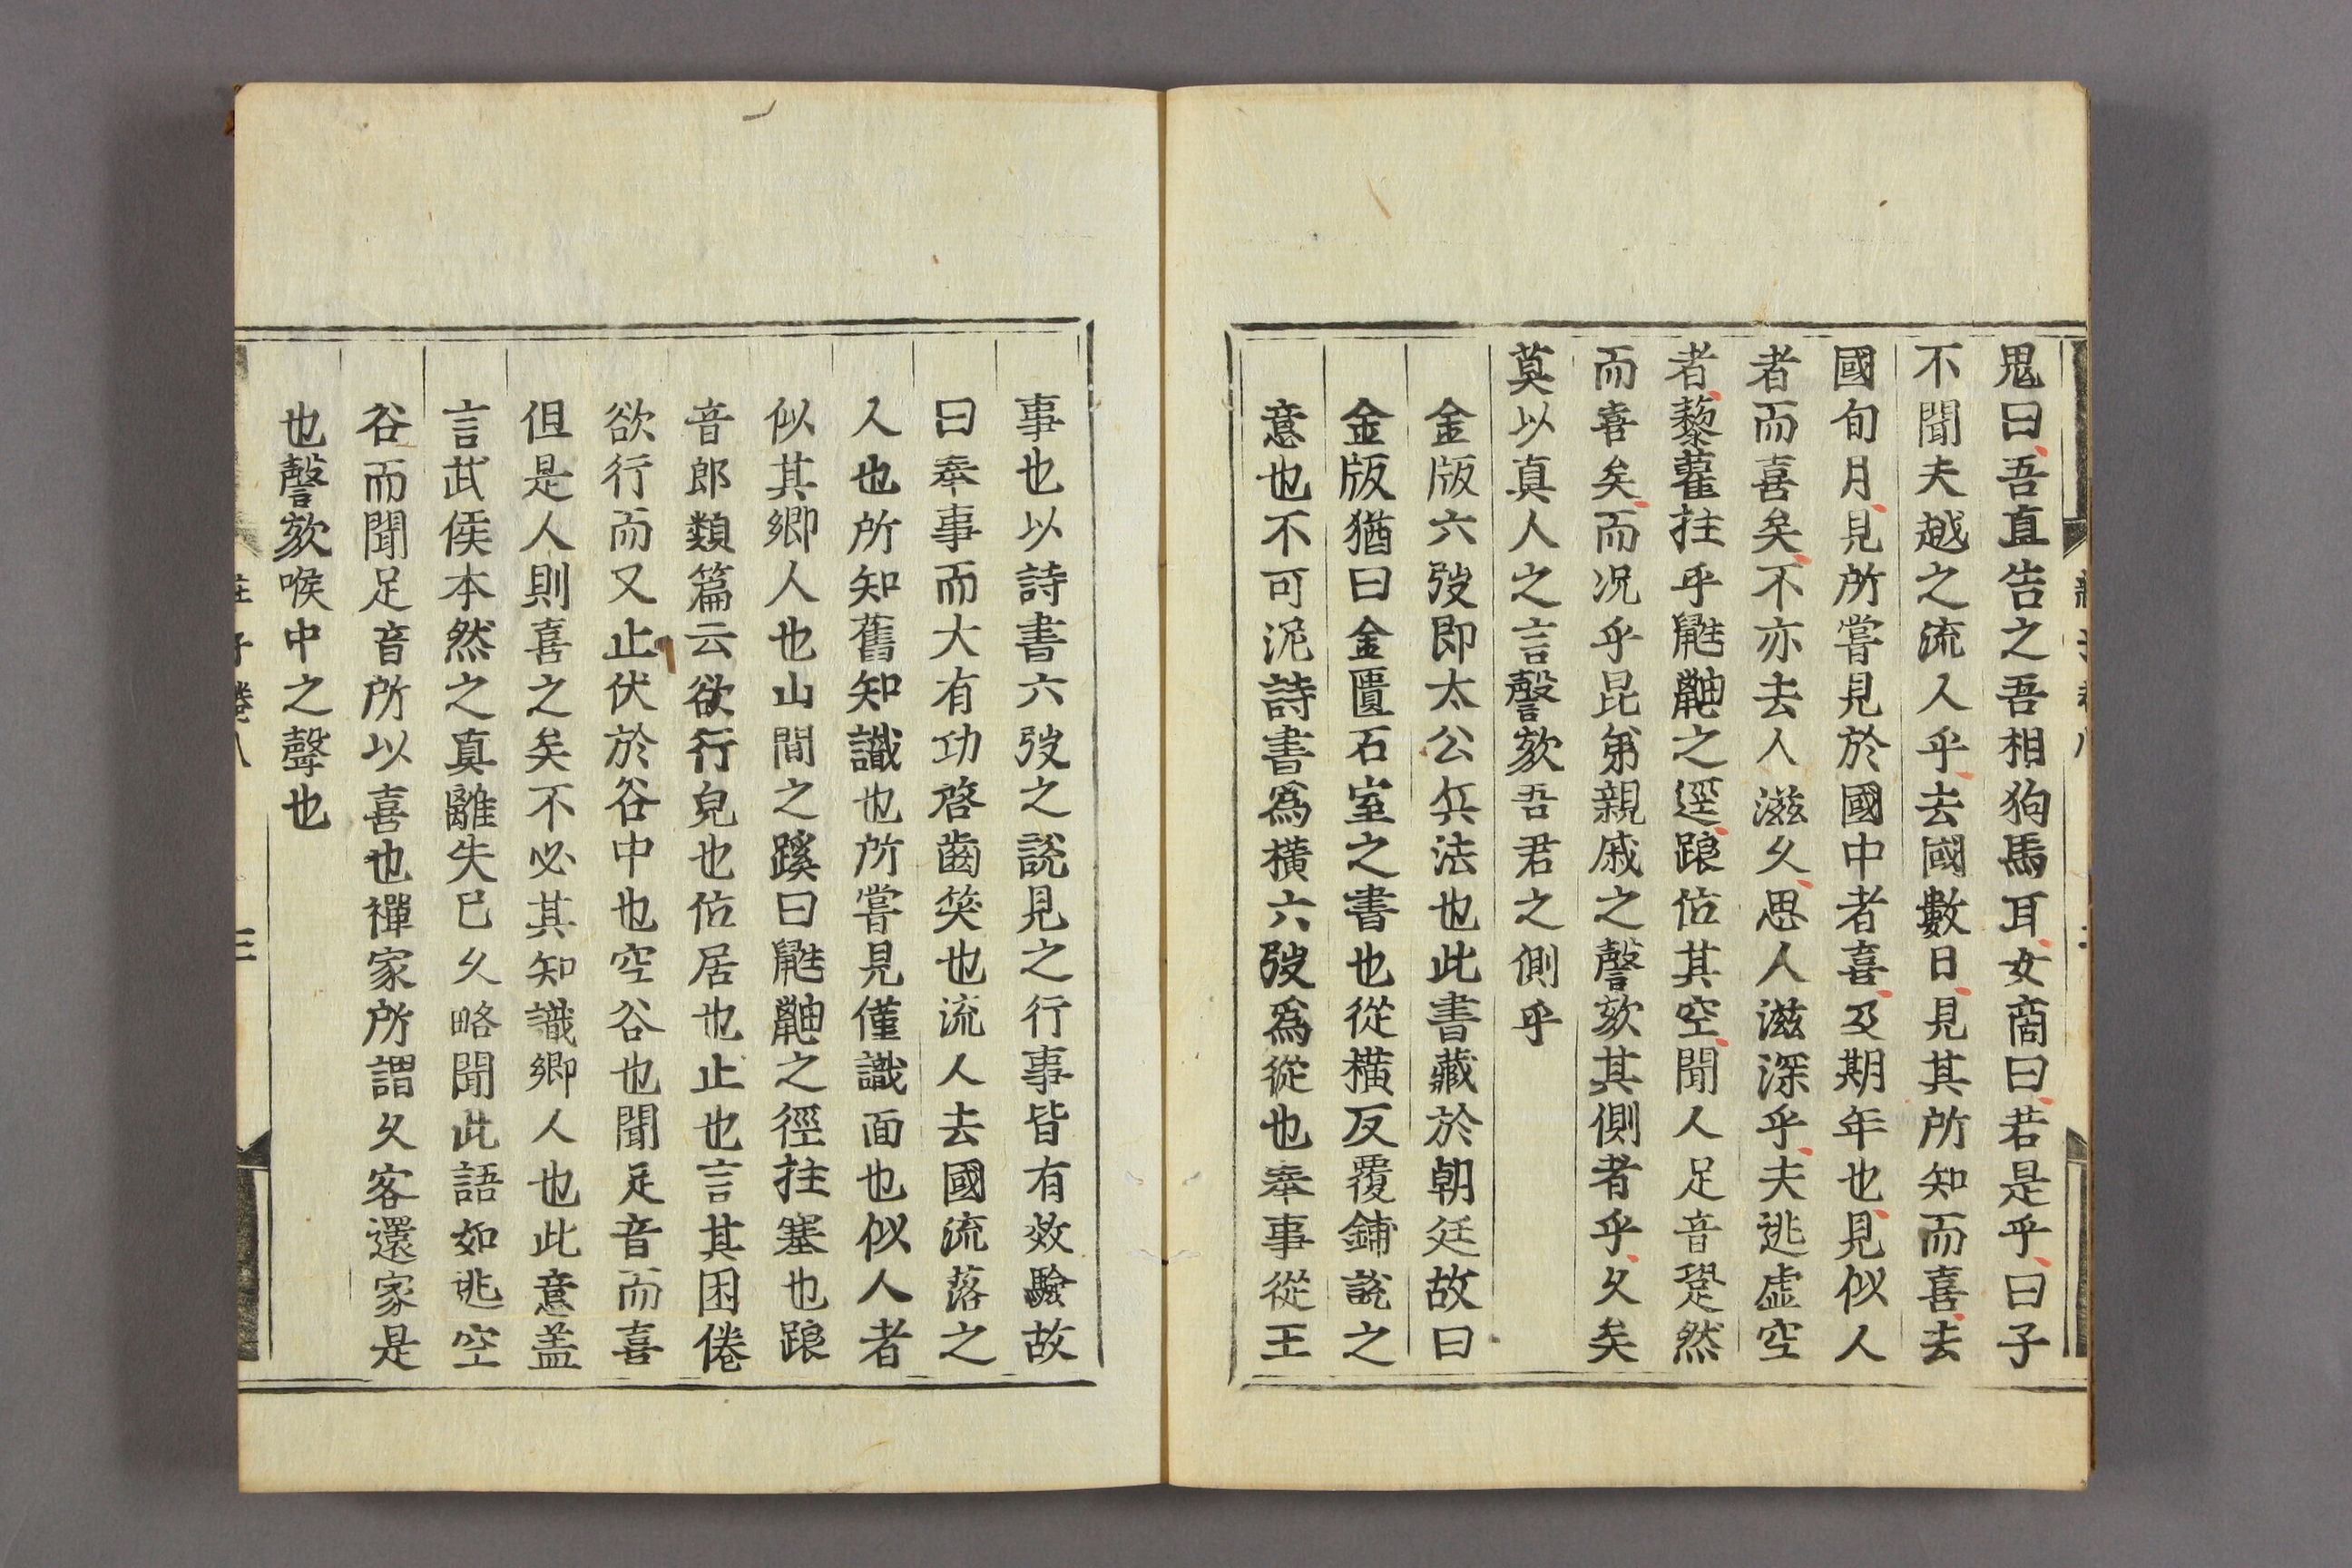 鬼曰吾直告之吾相狗馬耳女商曰若是乎曰子
不聞夫越之流人乎去國數日見其所知而喜去
國旬月見所嘗見於國中者喜及期年也見似人
者而喜矣不亦去人滋久思人滋深乎夫逃虛空
者藜藋拄乎鼪鼬之逕踉位其空聞人足音跫然
而喜矣而況乎昆弟親戚之謦欬其側者乎久矣
莫以真人之言謦欬吾君之側乎
金版六弢即太公兵法也此書藏於朝廷故曰
金版猶曰金匱石室之書也從橫反覆鋪說之
意也不可泥詩書為橫六弢為從也奉事從王
事也以詩書六弢之說見之行事皆有效驗故
曰奉事而大有功啓齒笑也流人去國流落之
人也所知舊知識也所嘗見僅識面也似人者
似其鄉人也山間之蹊曰鼪鼬之徑拄塞也踉
音郎類篇云欲行皃也位居也止也言其困倦
欲行而又止伏於谷中也空谷也聞足音而喜
但是人則喜之矣不必其知識鄉人也此意盖
言武侯本然之真離失已久略聞此語如逃空
谷而聞足音所以喜也禪家所謂久客還家是
也謦欬喉中之聲也
莊子卷八
三